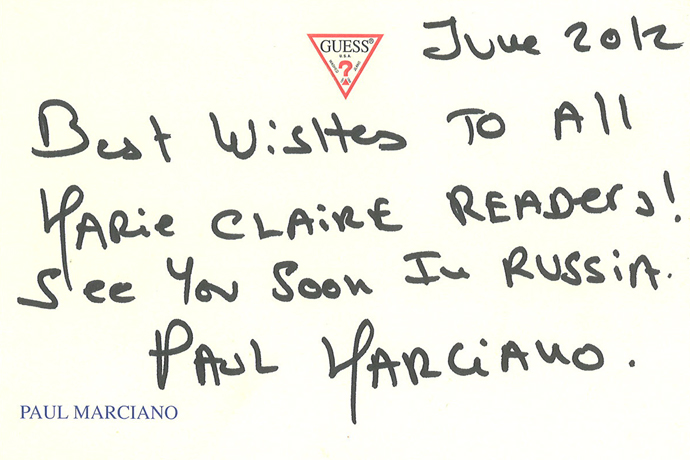 GUESS®
U.S.A.
?
June 2012
Best Wishes To All
Marie CLAiRE READers!
See You Soon In RussiA.
PAUL MARCiANO.
PAUL MARCIANO